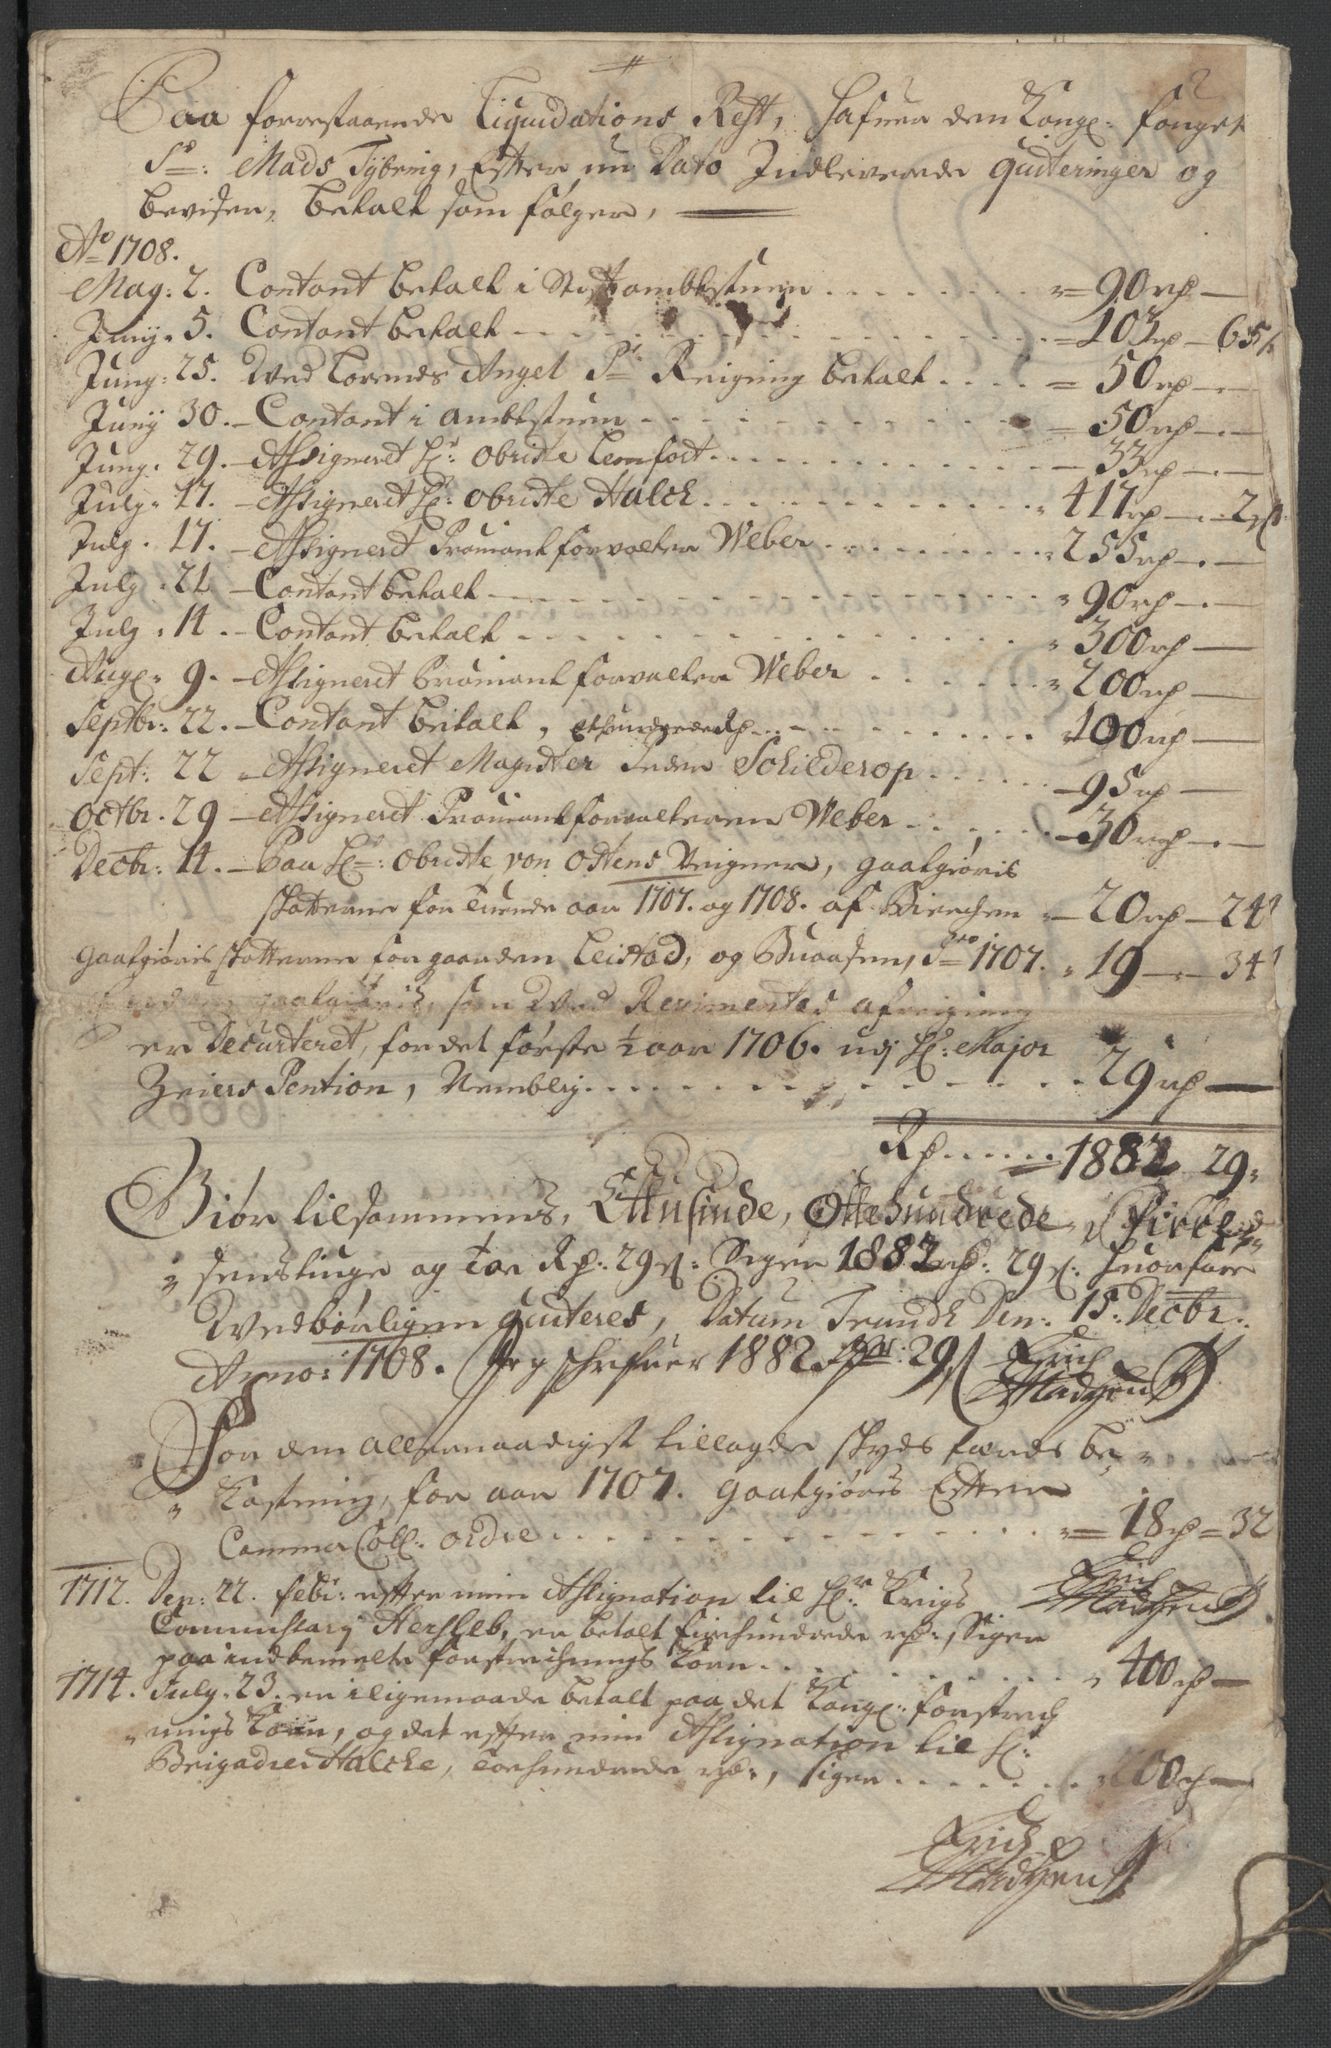 Paa forrestaaende Liquidations Rest, hafuer den Kongl: fouget
Sr: Mads Tybring, Effter nu Dato Indleverede quiteringer og
beviser, betalt som følger,
Ao 1708.
May: 2. Contant betalt i Stiftambtstuen . . . 90 rd —
Juny. 5. Contant betalt . . . 103 rd — 65 s
Juny: 25. Wed Lorends Angel Sr Reigning betalt . . . 50 rd —
Juny 30. — Contant i ambtstuen . . . 50 rd —
Juny. 29. — Assigneret Hr: Obriste Lemfort . . . 33 rd —
July. 17. — Assigneret Hr: Obriste Halck . . . 417 rd — 2 s
July. 17. — Assigneret Proviantforvalter Weber . . . 255 rd —
July. 21 — Contant betalt . . . 90 rd —
July. 14. — Contant betalt . . . 300 rd —
Aug: 9. — Assigneret Proviantforvalter Weber . . . 200 rd —
Septbr: 22. — Contant betalt, Ethundrede Rd . . . 100 rd —
Sept: 22 — Assigneret Magister Peder Schilderop . . . 95 rd —
Octbr. 29 — Assigneret Proviantforvalteren Weber . . . 30 rd —
Decbr: 11. — Paa Hr: Obriste von Ostens Veigner, gaatgiøris
skatterne for tuende aar 1707. og 1708. af Bierchen — 20 rd — 24
gaatgiøris skatterne for gaarden Leistad, og Buaasen, pro 1707. — 19 — 34
gaatgiøris, som Wed Regimentes afreigning
er Decurteret, for det første ½ aar 1706. udj Hr: Major
Zeiers Pention, Nemblig . . . 29 rd —
Rd . . . 1882 29
Giør tilsammens, Ettusinde, Ottehundrede, Firre
senstiuge og toe Rd: 29 s: Siger 1882 rd: 29 s: huorfore
Wedbørligen quiteres, Datum Trundh Den: 15: Decbr:
Anno: 1708. Jeg schrifuer 1882 29 s Erich
Madtzen
For den allernaadigst tillagde skyds færds be
Kostning, for aar 1707. gaatgiøris Effter
Cammer Coll: ordre . . . 18 rd = 32
1712. Den: 22. febr: efter min Assignation til Hr: Krigs Erich
Commissary Hersleb, er betalt fiirehundrede rd:, Siger Madtzen
paa indbemelte forstrechnings Korn . . . 400 rd —
1714. July. 23. er iligemaade betalt paa det Kongl: forstrech
nings Korn, og det efter min Assignation til Hr:
Brigadier Halcke, toehundrede rd:, siger . . . 200 rd —
Erich
Madtzen